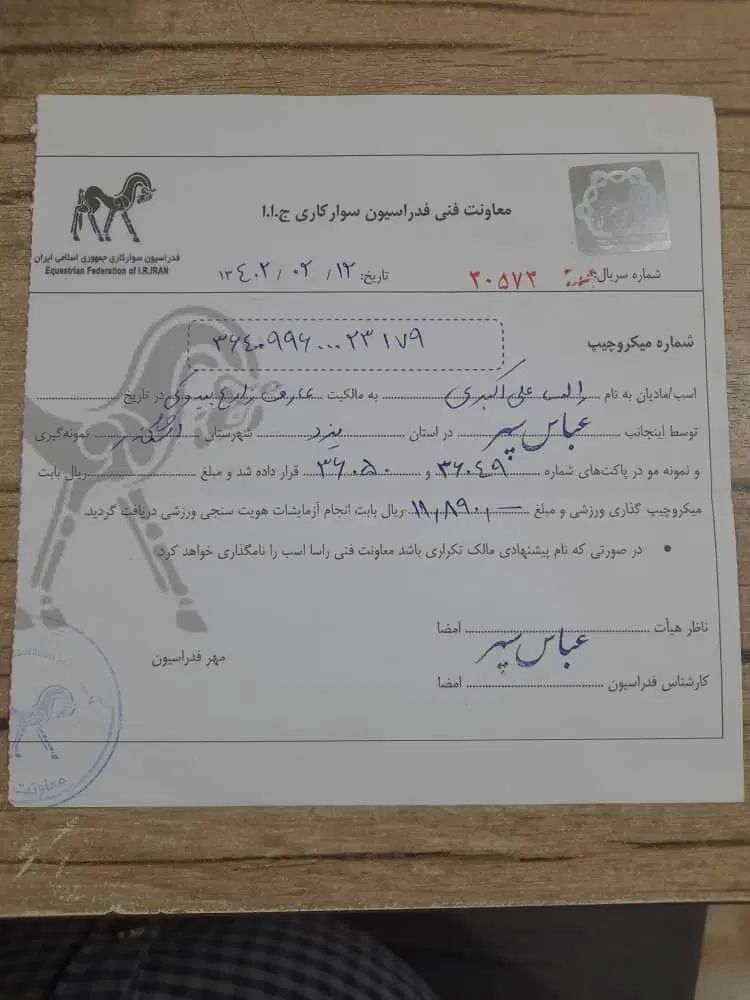 معاونت فنی فدراسیون سوارکاری ج.ا.ا
فدراسیون سوارکاری جمهوری اسلامی ایران
Equestrian Federation of I.R.IRAN
شماره سریال: ۳۰۵۷۳
تاریخ: ۱۲ / ۰۲ / ۱۳۴۰۲
شماره میکروچیپ
۳۶۴۰۹۹۶۰۰۰۲۳۱۷۹
اسب/مادیان به نام علی اکبری به مالکیت در تاریخ
توسط اینجانب عباس سپهر در استان یزد شهرستان نمونه‌گیری
و نمونه مو در پاکت‌های شماره ۳۶۰۴۹ و ۳۶۰۵۰ قرار داده شد و مبلغ ریال بابت
میکروچیپ گذاری ورزشی و مبلغ ریال بابت انجام آزمایشات هویت سنجی ورزشی دریافت گردید.
• در صورتی که نام پیشنهادی مالک تکراری باشد معاونت فنی راسا اسب را نامگذاری خواهد کرد.
ناظر هیأت امضا
عباس سپهر
کارشناس فدراسیون امضا
مهر فدراسیون
معاونت